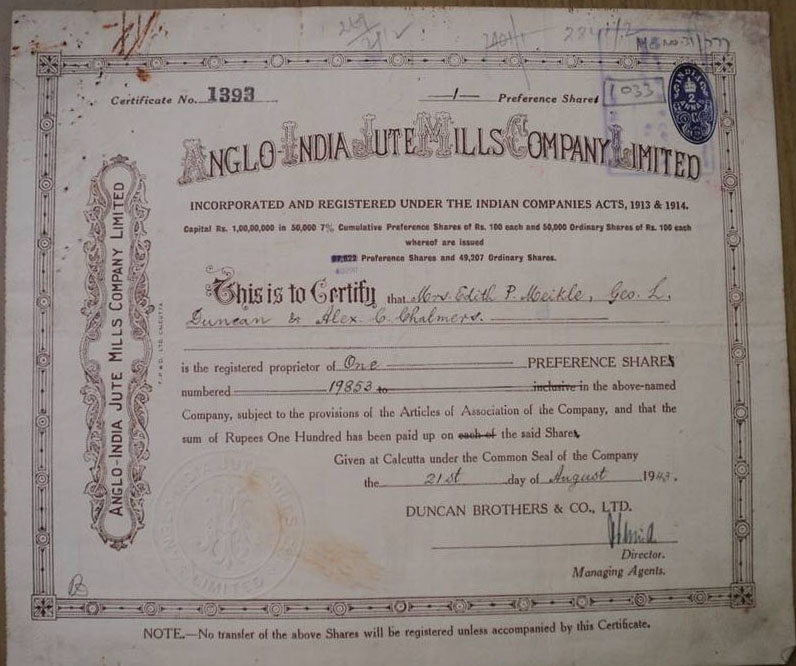 Certificate No. 1393 —1— Preference Shares
1033
INDIA 2 ANNAS
ANGLO-INDIA JUTE MILLS COMPANY LIMITED
INCORPORATED AND REGISTERED UNDER THE INDIAN COMPANIES ACTS, 1913 & 1914.
Capital Rs. 1,00,00,000 in 50,000 7% Cumulative Preference Shares of Rs. 100 each and 50,000 Ordinary Shares of Rs. 100 each
whereof are issued
Preference Shares and 49,207 Ordinary Shares.
This is to Certify that Mrs. Edith P. Meikle, Geo. L.
Duncan & Alex. C. Chalmers.
is the registered proprietor of One PREFERENCE SHARES
numbered 19853 to inclusive in the above-named
Company, subject to the provisions of the Articles of Association of the Company, and that the
sum of Rupees One Hundred has been paid up on each of the said Shares.
Given at Calcutta under the Common Seal of the Company
the 21st day of August 1943.
DUNCAN BROTHERS & CO., LTD.
Director.
Managing Agents.
ANGLO-INDIA JUTE MILLS COMPANY LIMITED
NOTE.—No transfer of the above Shares will be registered unless accompanied by this Certificate.